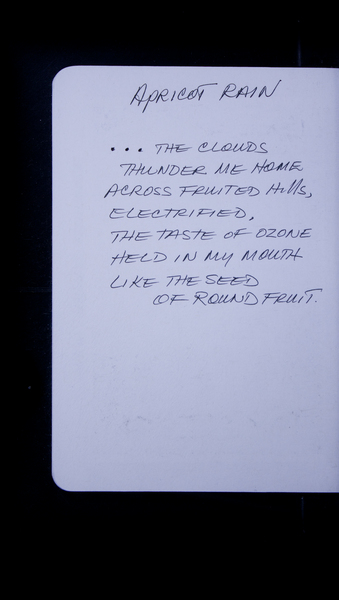 APRICOT RAIN
... THE CLOUDS
THUNDER ME HOME
ACROSS FRUITED Hills,
ELECTRIFIED,
THE TASTE OF OZONE
HELD IN MY MOUTH
LIKE THE SEED
OF ROUND FRUIT.